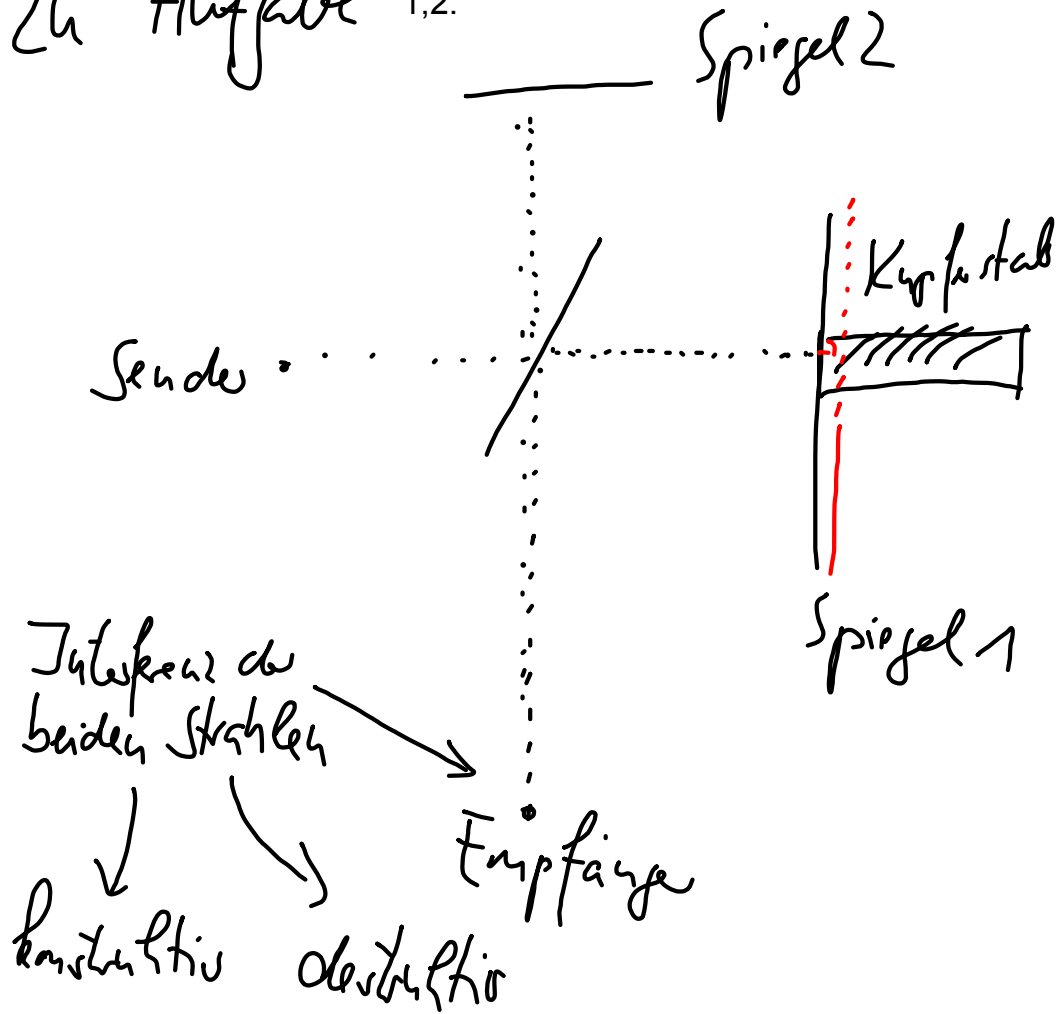 Zu Aufgabe 1,2.
Spiegel 2
Kupferstab
Sender
Spiegel 1
Interferenz der
beiden Strahlen
Empfänger
konstruktiv destruktiv